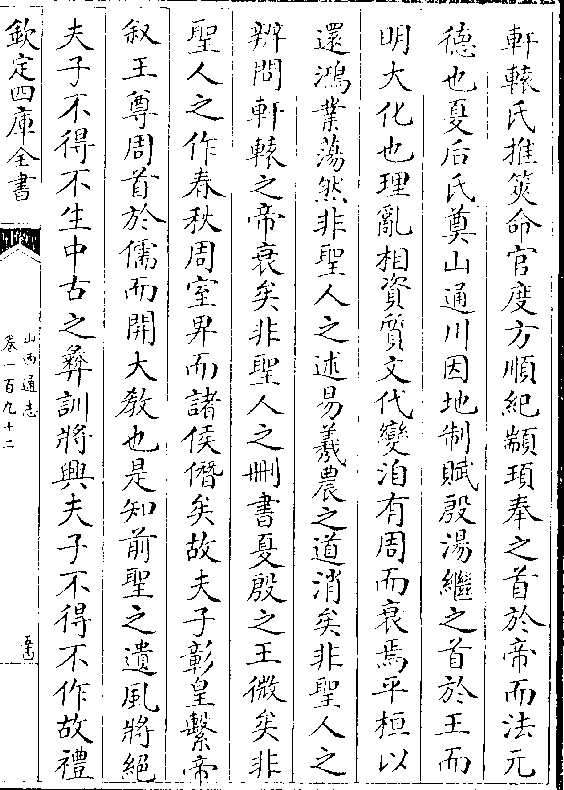 軒轅氏推筴命官度方順紀顓頊奉之首於帝而法元
德也夏后氏奠山通川因地制賦殷湯繼之首於王而
明大化也理亂相資質文代變洎有周而衰焉平桓以
還鴻業蕩然非聖人之述易羲農之道消矣非聖人之
辨問軒轅之帝衰矣非聖人之刪書夏殷之王微矣非
聖人之作春秋周室卑而諸侯僭矣故夫子彰皇繫帝
叙王尊周首於儒而開大教也是知前聖之遺風將絕
夫子不得不生中古之彞訓將興夫子不得不作故禮
欽定四庫全書
山西通志
卷一百九十二